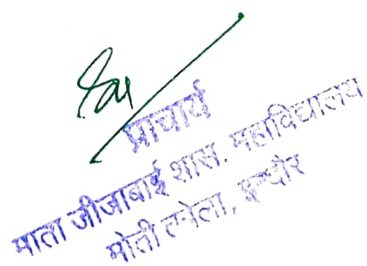 प्राचार्य
माता जीजाबाई शास. महाविद्यालय
मोती तबेला, इन्दौर